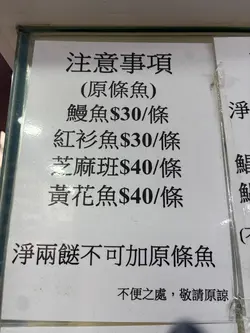 注意事項
(原條魚)
鰻魚$30/條
紅衫魚$30/條
芝麻班$40/條
黃花魚$40/條
淨兩餸不可加原條魚
不便之處，敬請原諒